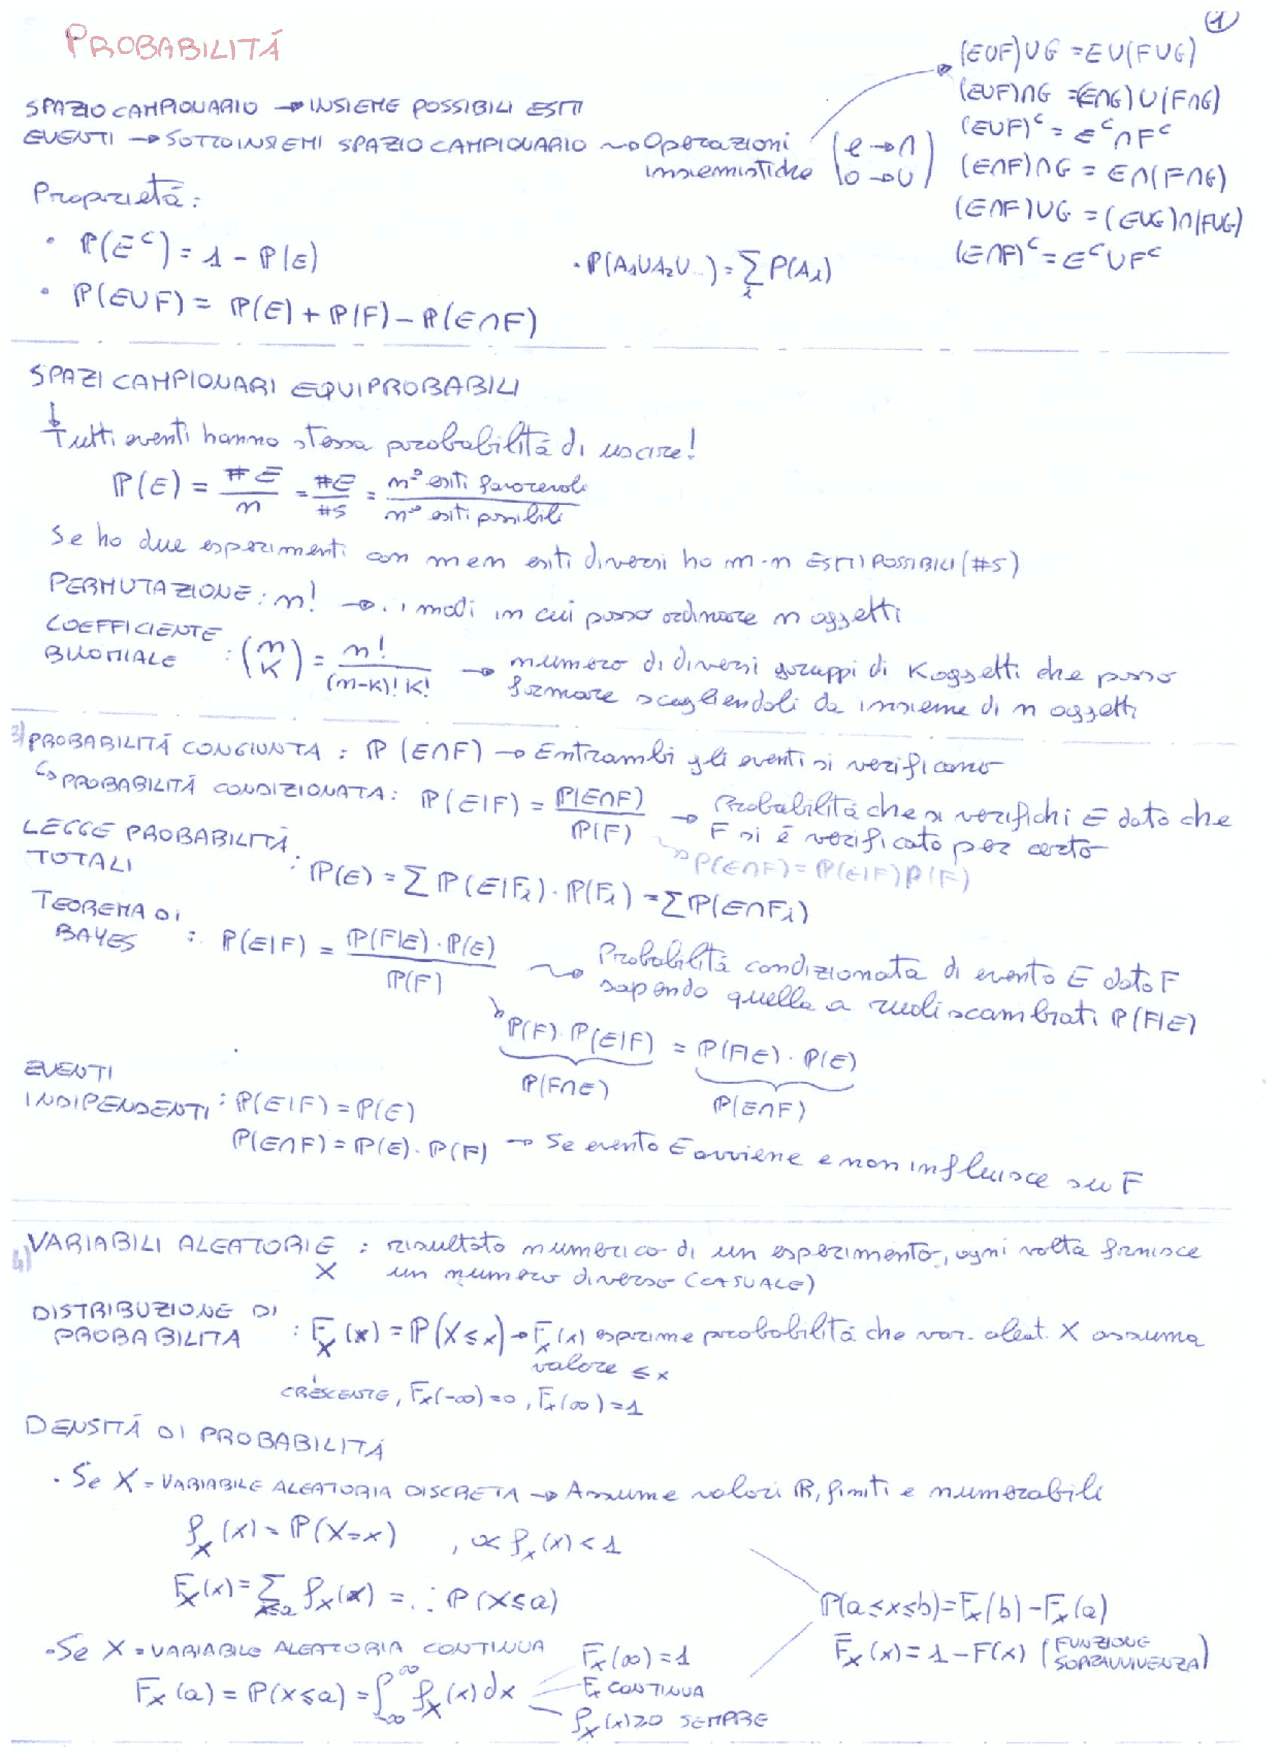 1
PROBABILITÁ
(E∪F)∪G = E∪(F∪G)
(E∪F)∩G = (E∩G)∪(F∩G)
(E∪F)ᶜ = Eᶜ∩Fᶜ
(E∩F)∩G = E∩(F∩G)
(E∩F)∪G = (E∪G)∩(F∪G)
(E∩F)ᶜ = Eᶜ∪Fᶜ
SPAZIO CAMPIONARIO → INSIEME POSSIBILI ESITI
EVENTI → SOTTOINSIEMI SPAZIO CAMPIONARIO ⇝ Operazioni insiemistiche (e → ∩ o → ∪)
Proprietá:
• ℙ(Eᶜ) = 1 - ℙ(E)
• P(A₁∪A₂∪...) = Σᵢ P(Aᵢ)
• ℙ(E∪F) = ℙ(E) + ℙ(F) - ℙ(E∩F)
SPAZI CAMPIONARI EQUIPROBABILI
↓
Tutti eventi hanno stessa probabilitá di uscire!
ℙ(E) = #E/n = #E/#S = n° esiti favorevoli/n° esiti possibili
Se ho due esperimenti con m e n esiti diversi ho m·n ESITI POSSIBILI (#S)
PERMUTAZIONE: n! → i modi in cui posso ordinare n oggetti
COEFFICIENTE BINOMIALE : (n K) = n!/(n-K)!K! → numero di diversi gruppi di K oggetti che posso
formare scegliendoli da insieme di n oggetti
3) PROBABILITÁ CONGIUNTA : ℙ(E∩F) → Entrambi gli eventi si verificano
↳ PROBABILITÁ CONDIZIONATA: ℙ(E|F) = P(E∩F)/ℙ(F) → Probabilitá che si verifichi E dato che
F si é verificato per certo
→ P(E∩F) = P(E|F)P(F)
LEGGE PROBABILITÁ TOTALI : ℙ(E) = Σ ℙ(E|Fᵢ)·ℙ(Fᵢ) = Σ ℙ(E∩Fᵢ)
TEOREMA DI BAYES : ℙ(E|F) = ℙ(F|E)·ℙ(E)/ℙ(F) ⇝ Probabilitá condizionata di evento E dato F
sapendo quella a ruoli scambiati ℙ(F|E)
↳ ℙ(F)·ℙ(E|F) = ℙ(F|E)·ℙ(E)
ℙ(F∩E) ℙ(E∩F)
EVENTI INDIPENDENTI : ℙ(E|F) = ℙ(E)
ℙ(E∩F) = ℙ(E)·ℙ(F) → Se evento E avviene e non influisce su F
4) VARIABILI ALEATORIE : risultato numerico di un esperimento, ogni volta fornisce
X un numero diverso (CASUALE)
DISTRIBUZIONE DI PROBABILITA : Fₓ(x) = ℙ(X≤x) → Fₓ(x) esprime probabilitá che var. aleat. X assuma
valore ≤ x
CRESCENTE, Fₓ(-∞)=0, Fₓ(∞)=1
DENSITÁ DI PROBABILITÁ
• Se X = VARIABILE ALEATORIA DISCRETA → Assume valori ℝ, finiti e numerabili
fₓ(x) = ℙ(X=x) , ∝ fₓ(x) < 1
Fₓ(x) = Σ x≤a fₓ(x) = ∴ ℙ(X≤a)
ℙ(a≤x≤b) = Fₓ(b) - Fₓ(a)
F̄ₓ(x) = 1 - F(x) (FUNZIONE SOPRAVVIVENZA)
• Se X = VARIABILE ALEATORIA CONTINUA
Fₓ(a) = P(X≤a) = ∫₋∞^∞ fₓ(x)dx
Fₓ(∞) = 1
Fₓ CONTINUA
fₓ(x)≥0 SEMPRE